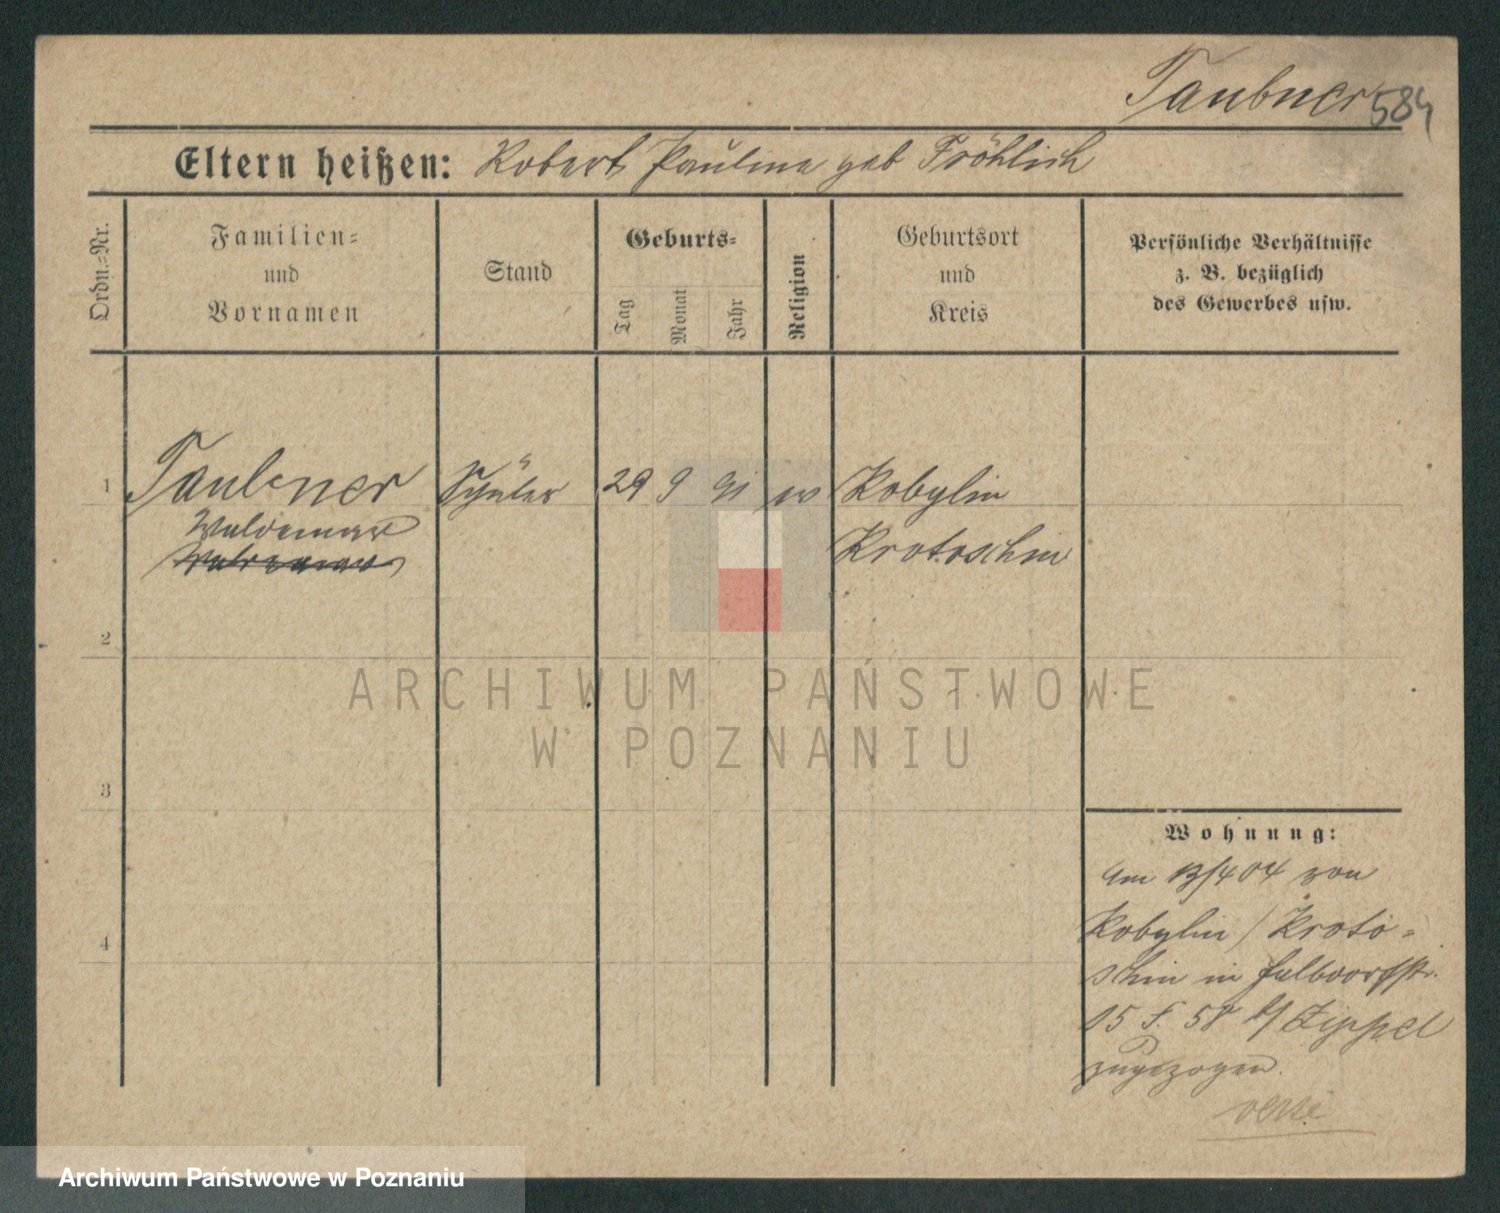 Taubner 584
Eltern heißen: Robert Pauline geb Fröhlich
Ordn.=Nr.
Familien=
und
Vornamen
Stand
Geburts=
Tag
Monat
Jahr
Religion
Geburtsort
und
Kreis
Persönliche Verhältnisse
z. B. bezüglich
des Gewerbes usw.
1 Taubner Schüler 29 9 91 Kobylin
Waldemar
Krotoschin
2
ARCHIWUM PAŃSTWOWE
W POZNANIU
3
Wohnung:
am 13/4 04 von
Kobylin / Kroto=
4
schin in Halbdorfstr.
15 F. 58 b/ Zippel
zugezogen.
Archiwum Państwowe w Poznaniu